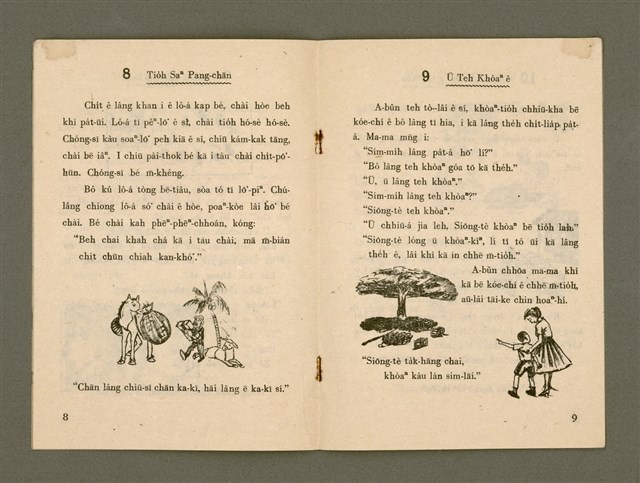 8 Tio̍h Saⁿ Pang-chān
Chi̍t ê lâng khan i ê lô-á kap bé, chài hòe beh
khì pa̍t-ūi. Lô-á tī pêⁿ-lō͘ ê sî, chài tio̍h hó-sè hó-sè.
Chóng-sī kàu soaⁿ-lō͘ peh kiā ê sî, chiū kám-kak tāng,
chài bē iâⁿ. I chiū pài-thok bé kā i tàu chài chi̍t-pō͘-
hūn. Chóng-sī bé m̄-khéng.
Bô kú lô-á tòng bē-tiâu, sòa tó tī lō͘-piⁿ. Chú-
lâng chiong lô-á só͘ chài ê hòe, poaⁿ-kòe lâi hō͘ bé
chài. Bé chài kah phēⁿ-phēⁿ-chhoán, kóng:
“Beh chai khah chá kā i tàu chài, mā m̄-bián
chi̍t chūn chiah kan-khó͘.”
“Chān lâng chiū-sī chān ka-kī, hāi lâng ē ka-kī sí.”
8
9 Ū Teh Khòaⁿ ê
A-bûn teh tò-lâi ê sî, khòaⁿ-tio̍h chhiū-kha bē
kóe-chí ê bô lâng tī hia, i kā lâng the̍h chi̍t-lia̍p pa̍t-
á. Ma-ma mn̄g i:
“Sím-mih lâng pa̍t-á hō͘ lí?”
“Bô lâng teh khòaⁿ góa tō kā the̍h.”
“Ū, ū lâng teh khòaⁿ.”
“Sím-mih lâng teh khòaⁿ?”
“Siōng-tè teh khòaⁿ.”
“Ū chhiū-á jia leh, Siōng-tè khòaⁿ bē tio̍h lah.”
“Siōng-tè lóng ū khòaⁿ-kìⁿ, lí tī tó ūi kā lâng
the̍h ê, lâi khì kā in chhē m̄-tio̍h.”
A-bûn chhōa ma-ma khì
kā bē kóe-chí ê chhē m̄-tio̍h,
aū-lâi tāi-ke chin hoaⁿ-hí.
“Siōng-tè ta̍k-hāng chai,
khòaⁿ kàu lán sim-lāi.”
9